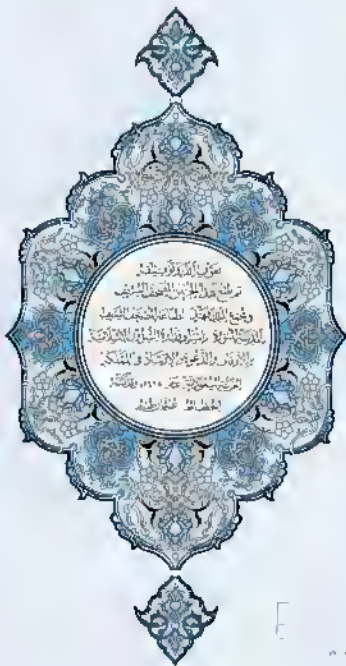 بعون الله وتوفيقه
تم طبع هذا الجزء من المصحف الشريف
في مجمع الملك فهد لطباعة المصحف الشريف
بالمدينة المنورة بإشراف وزارة الشؤون الإسلامية
والأوقاف والدعوة والإرشاد في المملكة
العربية السعودية عام
الخطاط عثمان طه